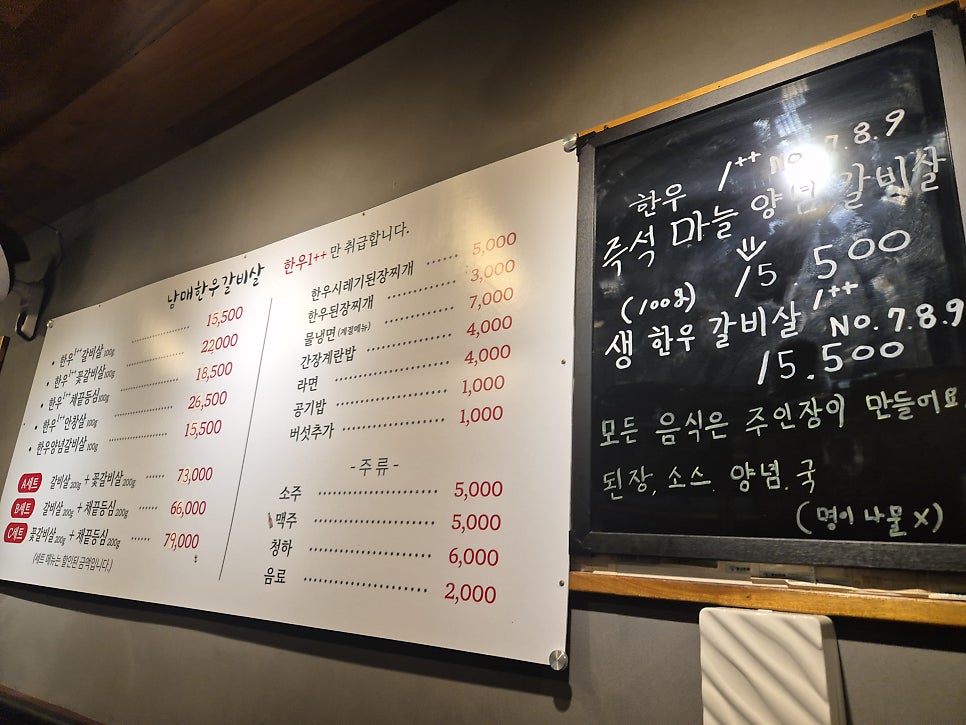 남매한우갈비살 한우1++만 취급합니다.
• 한우1++갈비살100g 15,500
• 한우1++꽃갈비살100g 22,000
• 한우1++채끝등심100g 18,500
• 한우1++안창살100g 26,500
• 한우양념갈비살100g 15,500
A세트 갈비살200g + 꽃갈비살200g ...... 73,000
B세트 갈비살200g + 채끝등심200g ...... 66,000
C세트 꽃갈비살200g + 채끝등심200g ...... 79,000
(세트 메뉴는 할인된 금액입니다.)
한우시래기된장찌개 ...... 5,000
한우된장찌개 3,000
물냉면(계절메뉴) 7,000
간장계란밥 4,000
라면 4,000
공기밥 1,000
버섯추가 1,000
- 주 류 -
소주 5,000
맥주 5,000
청하 6,000
음료 2,000
한우 1++ No.7.8.9
즉석 마늘 양념 갈비살
(100g) 15.500
생 한우 갈비살 1++ No.7.8.9
15.500
모든 음식은 주인장이 만들어요
된장, 소스. 양념. 국
(명이 나물 x)